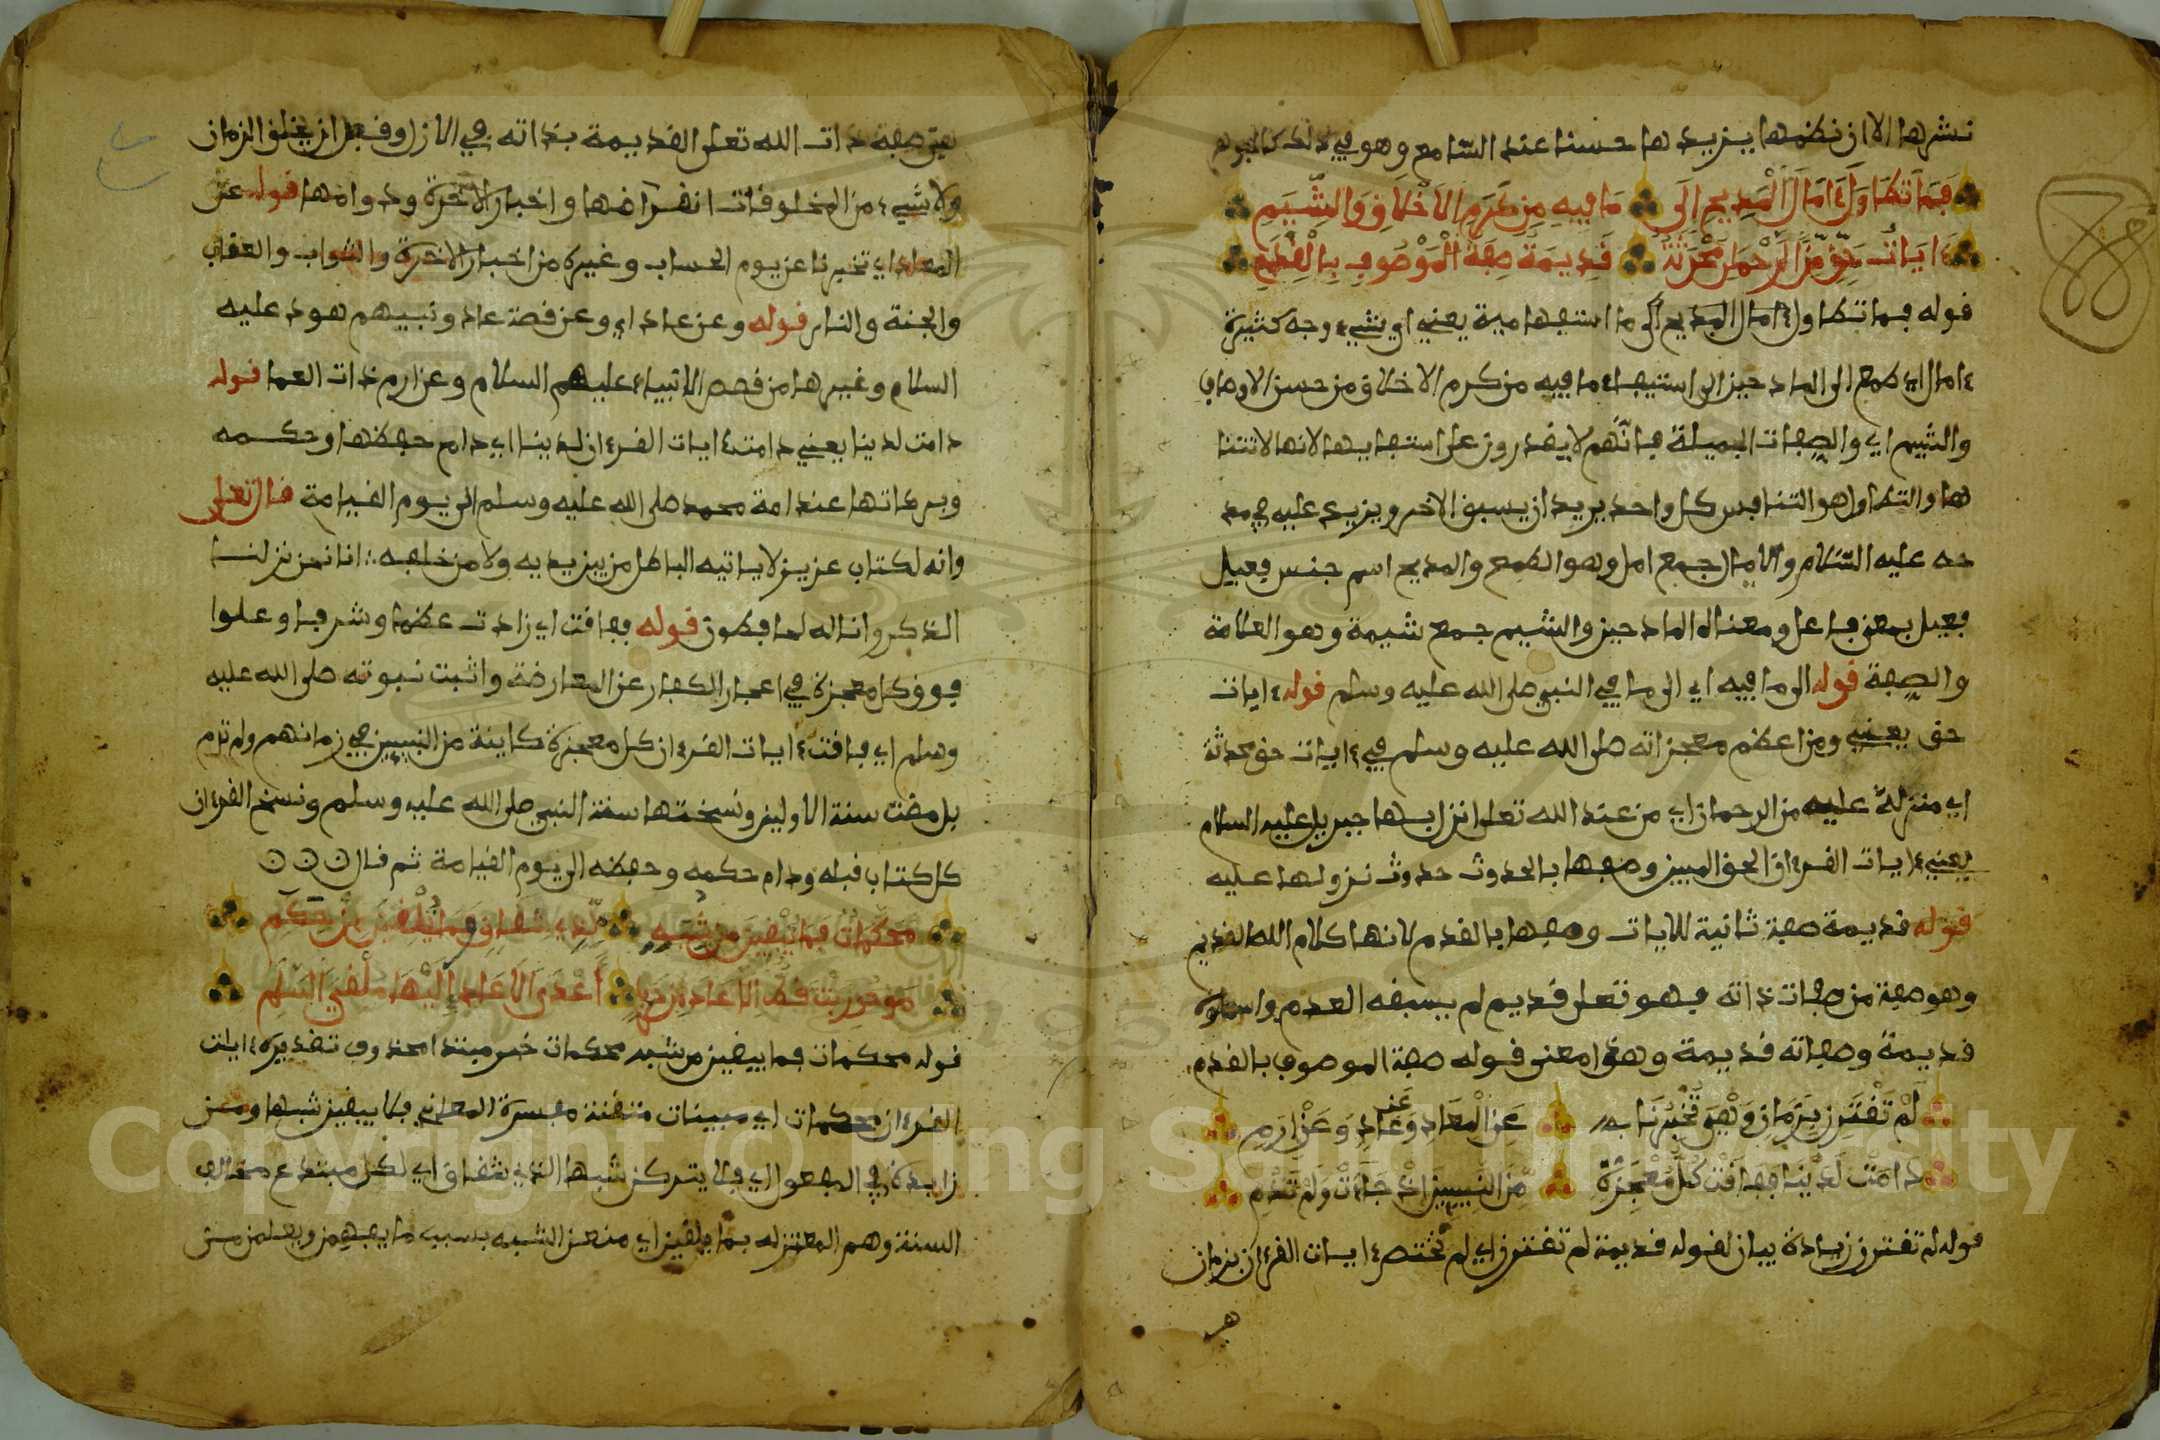 نشرها الا ان نظمها يزيدها حسنا عند السامع وهو في ذلك كالجوهر
فما تطاول ءامال المديح الى ما فيه من كرم الاخلاق والشيم
ءايات حق من الرحمن محدثة قديمة صفة الموصوف بالقدم
قوله فما تطاول ءامال المديح الى ما استفهامية يعني اي شيء وجه كثيرة
ءامال اي طمع الى المادحين الى استيفاء ما فيه من كرم الاخلاق من حسن الاوصاف
والشيم اي والصفات الجميلة فانهم لا يقدرون على استيفايها لانها لا تتنا
ها والتطاول هو التنافس كل واحد يريد ان يسبق الاخر ويزيد عليه في مد
حه عليه السلام والامال جمع امل وهو الطمع والمديح اسم جنس فعيل
فعيل بمعنى فاعل ومعناه المادحين والشيم جمع شيمة وهو العلامة
والصفة قوله الى ما فيه اي الى ما في النبي صلى الله عليه وسلم قوله ءايات
حق يعني ومن اعظم معجزاته صلى الله عليه وسلم في ءايات حق محدثة
اي منزلة عليه من الرحمان اي من عند الله تعلى انزل بها جبريل عليه السلام
يعني ءايات القرءان الحق المبين وصفها بالحدوث حدوث نزولها عليه
قوله قديمة صفة ثانية للايات وصفها بالقدم لانها كلام الله القديم
وهو صفة من صفات ذاته فهو تعلى قديم لم يسبقه العدم واسماؤه
قديمة وصفاته قديمة وهذا معنى قوله صفة الموصوف بالقدم
لم تقترن بزمان وهي تخبرنا عن المعاد وعن عاد وعن ارم
دامت لدينا ففاقت كل معجزة من النبيين اذ جاءت ولم تدم
قوله لم تقترن زيادة بيان لقوله قديمة لم تقترن اي لم تختص ءايات القرءان بزمان
هي
هي صفة ذات الله تعلى القديمة بذاته في الازل وقبل ان يخلق الزمان
ولا شيء من المخلوقات انقراضها واخبار الاخرة ودوامها قوله عن
المعاد اي تخبرنا عن يوم الحساب وغيره من اخبار الاخرة والثواب والعقاب
والجنة والنار قوله وعن عاد اي وعن قصة عاد ونبيهم هود عليه
السلام وغيرها من قصص الانبياء عليهم السلام وعن ارم ذات العما قوله
دامت لدينا يعني دامت ءايات القرءان لدينا اي دام حفظها وحكمه
وبركاتها عند امة محمد صلى الله عليه وسلم الى يوم القيامة قال تعلى
وانه لكتاب عزيز لا ياتيه الباطل من بين يديه ولا من خلفه انا نحن نزلنا
الذكر وانا له لحافظون قوله ففاقت اي زادت عظما وشرفا وعلوا
فوق كل معجزة في اعجاز الكفار عن المعارضة واثبت نبوته صلى الله عليه
وسلم اي فاقت ءايات القرءان كل معجزة كاينة من النبيين في زمانهم ولم تدم
بل مضت سنة الاولين ونسختها سنة النبي صلى الله عليه وسلم ونسخ القرءان
كل كتاب قبله ودام حكمه وحفظه الى يوم القيامة ثم قال
محكمات فما يبقين من شبه لذي شقاق وما يبغين من حكم
ما حوربت قط الا عاد من حرب أعدى الاعادي اليها ملقي السلم
قوله محكمات فما يبقين من شبه محكمات خبر مبتدا محذوف تقديره ءايات
القرءان محكمات اي مبينات متقنة مفسرة المعاني فلا يبقين شبها ومن
زايدة في المفعول اي فلا يتركن شبها لذي شقاق اي لكل مبتدع مخالف
السنة وهم المعتزله بما يبقين اي منعن الشبه بسبب ما يفهمن ويعلمن من
Copyright © King Saud University
1957